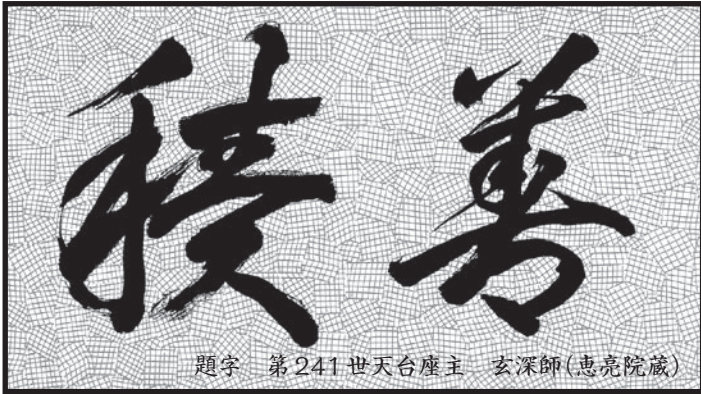 積善
題字　第241世天台座主　玄深師（恵亮院蔵）